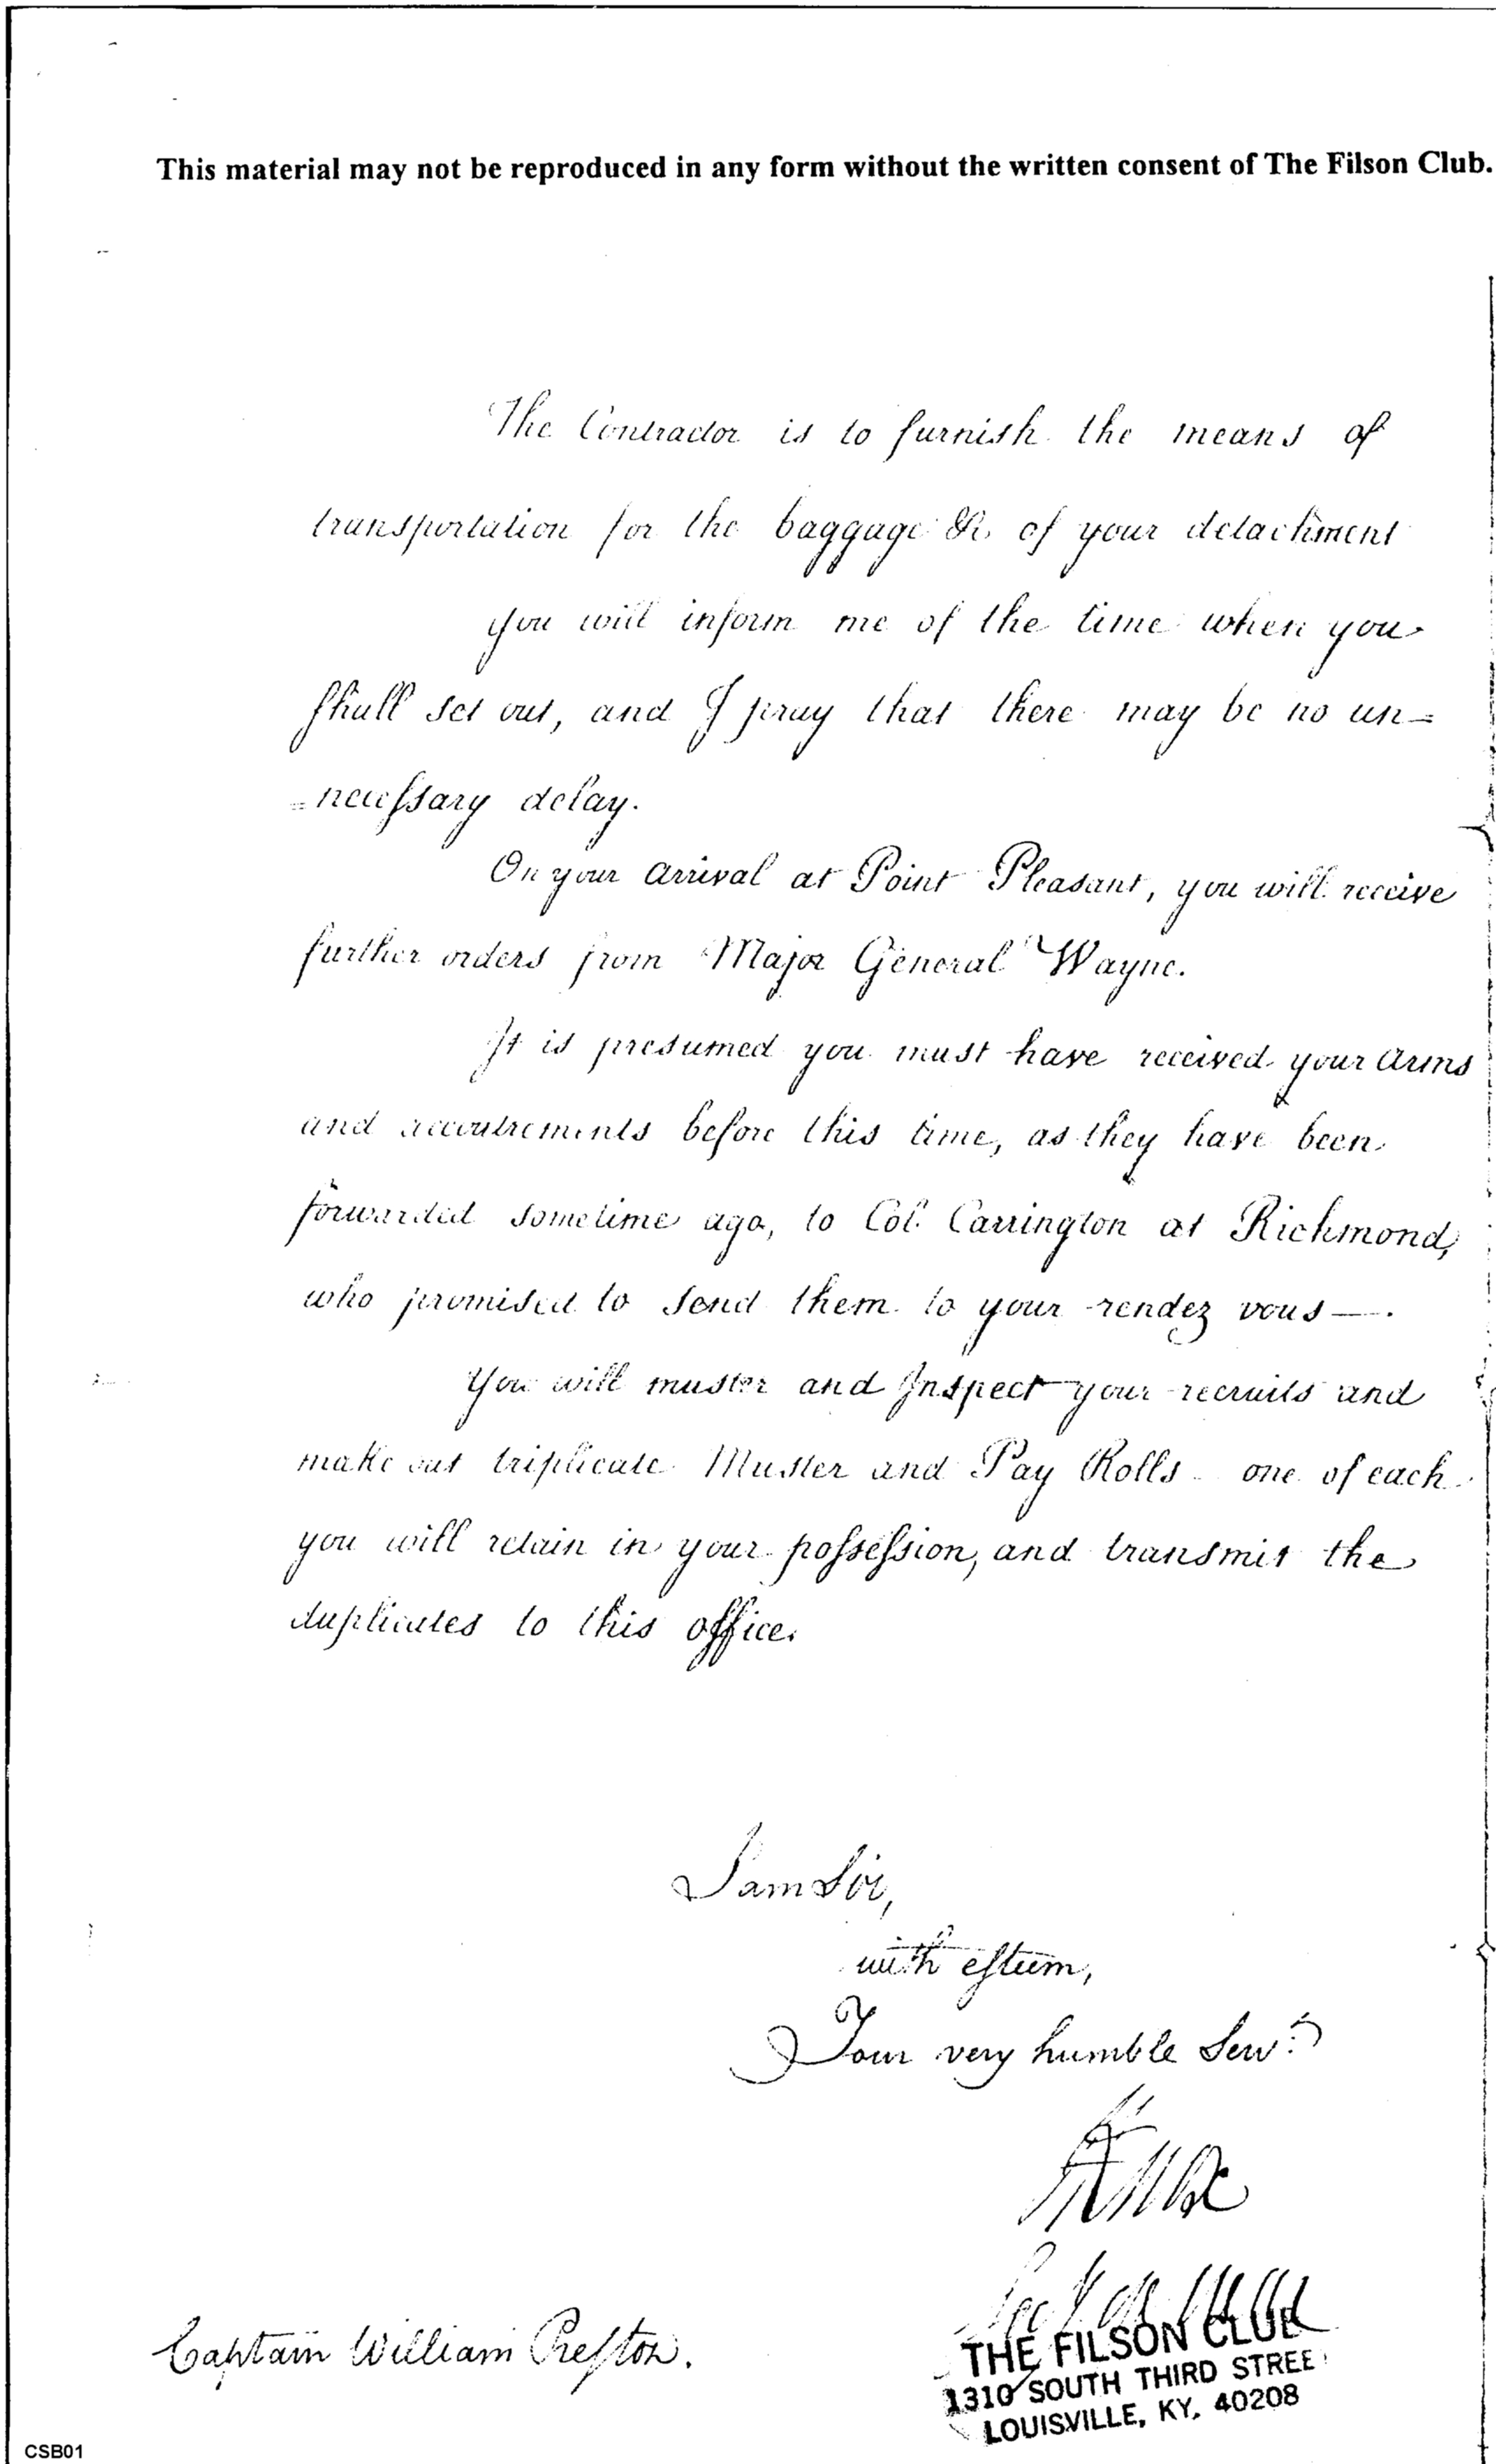 This material may not be reproduced in any form without the written consent of The Filson Club.
The Contractor is to furnish the means of
transportation for the baggage &c. of your detachment
You will inform me of the time when you
shall set out, and I pray that there may be no un=
=necessary delay.
On your arrival at Point Pleasant, you will receive
further orders from Major General Wayne.
It is presumed you must have received your arms
and accoutrements before this time, as they have been
forwarded sometime ago, to Col. Carrington at Richmond,
who promised to send them to your rendez vous —.
You will muster and Inspect your recruits and
make out triplicate Muster and Pay Rolls - one of each
you will retain in your possession, and transmit the
duplicates to this office.
I am Sir,
with esteem,
Your very humble Servt.
HKnox
Secy of War
THE FILSON CLUB
1310 SOUTH THIRD STREE
LOUISVILLE, KY. 40208
Captain William Preston.
CSB01